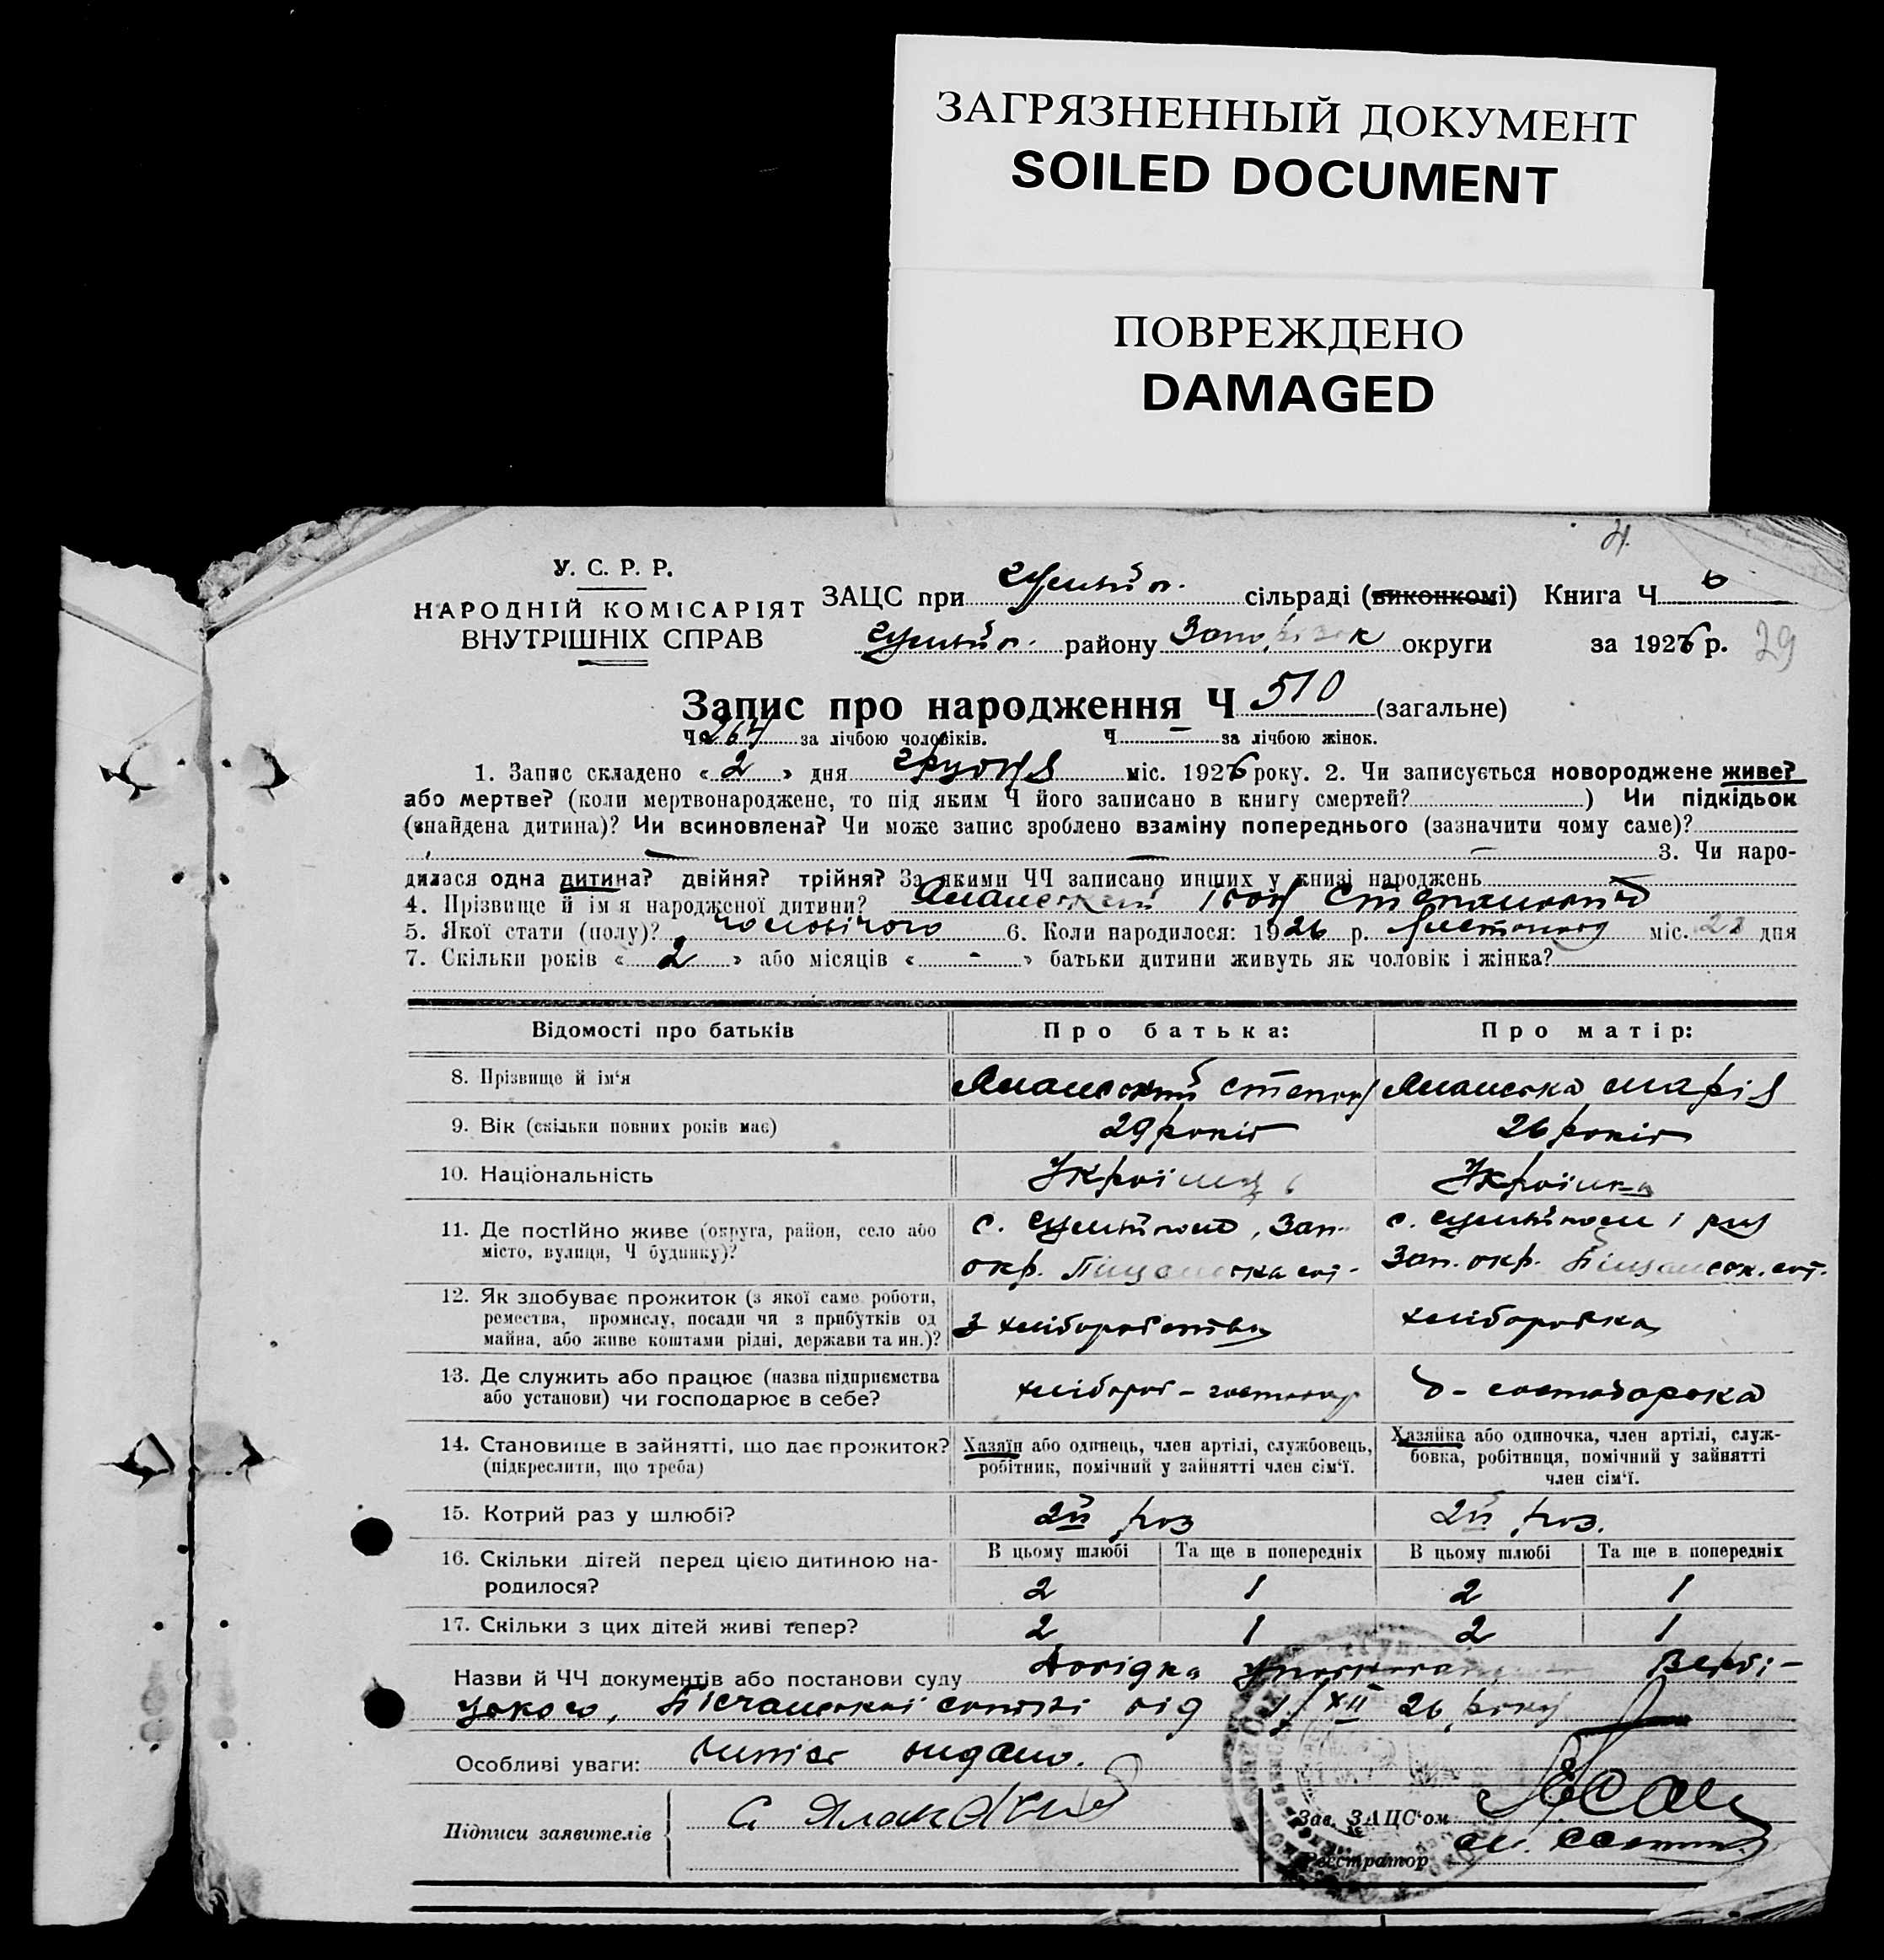 ЗАГРЯЗНЕННЫЙ ДОКУМЕНТ
SOILED DOCUMENT
ПОВРЕЖДЕНО
DAMAGED
4
У. С. Р. Р.
НАРОДНІЙ КОМІСАРІЯТ
ВНУТРІШНІХ СПРАВ
ЗАЦС при сільраді (виконкомі) Книга Ч 6
району округи за 1926 р. 29
Запис про народження Ч 510 (загальне)
Ч 264 за лічбою чоловіків. Ч - за лічбою жінок.
1. Запис складено « 2 » дня грудня міс. 1926 року. 2. Чи записується новороджене живе?
або мертве? (коли мертвонароджене, то під яким Ч його записано в книгу смертей? ) Чи підкідьок
(знайдена дитина)? Чи всиновлена? Чи може запис зроблено взаміну попереднього (зазначити чому саме)?
3. Чи наро-
дилася одна дитина? двійня? трійня? За якими ЧЧ записано инших у книзі народжень
4. Прізвище й ім я народженої дитини? Степанович
5. Якої стати (полу)? чоловічого 6. Коли народилося: 1926 р. листопаду міс. 23 дня
7. Скільки років « 2 » або місяців « - » батьки дитини живуть як чоловік і жінка?
Відомості про батьків Про батька: Про матір:
8. Прізвище й ім'я Степан Марія
9. Вік (скільки повних років має) 29 років 26 років
10. Національність Українець Українка
11. Де постійно живе (округа, район, село або
місто, вулиця, Ч будинку)?
с. Зап.
окр.
с.
Зап. окр.
12. Як здобуває прожиток (з якої саме роботи,
ремества, промислу, посади чи з прибутків од
майна, або живе коштами рідні, держави та ин.)?
З хліборобства хліборобка
13. Де служить або працює (назва підприємства
або установи) чи господарює в себе?
хлібороб - господар д-господарка
14. Становище в зайнятті, що дає прожиток?
(підкреслити, що треба)
Хазяїн або одинець, член артілі, службовець,
робітник, помічний у зайнятті член сім'ї.
Хазяйка або одиночка, член артілі, служ-
бовка, робітниця, помічний у зайнятті
член сім'ї.
15. Котрий раз у шлюбі? 2й раз 2й раз.
16. Скільки дітей перед цією дитиною на-
родилося?
В цьому шлюбі Та ще в попередніх В цьому шлюбі Та ще в попередніх
2 1 2 1
17. Скільки з цих дітей живі тепер? 2 1 2 1
Назви й ЧЧ документів або постанови суду Довідка
від 1/XII 26 року
Особливі уваги: видано.
Підписи заявителів С.
Зав. ЗАЦС'ом
Реєстратор